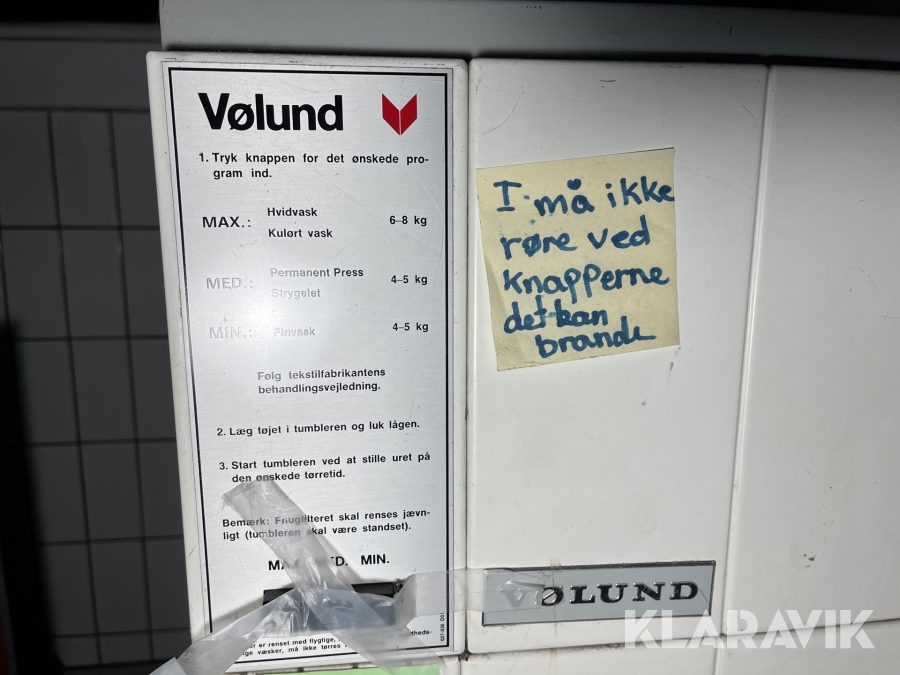 Vølund
1. Tryk knappen for det ønskede pro-
gram ind.
MAX.: Hvidvask 6–8 kg
Kulørt vask
MED.: Permanent Press 4–5 kg
Strygelet
MIN.: Finvask 4–5 kg
Følg tekstilfabrikantens
behandlingsvejledning.
2. Læg tøjet i tumbleren og luk lågen.
3. Start tumbleren ved at stille uret på
den ønskede tørretid.
Bemærk: Fnugfilteret skal renses jævn-
ligt (tumbleren skal være standset).
MAX. MED. MIN.
er renset med flygtige,
væsker, må ikke tørres
I må ikke
røre ved
knapperne
det kan
brande
VØLUND
KLARAVIK